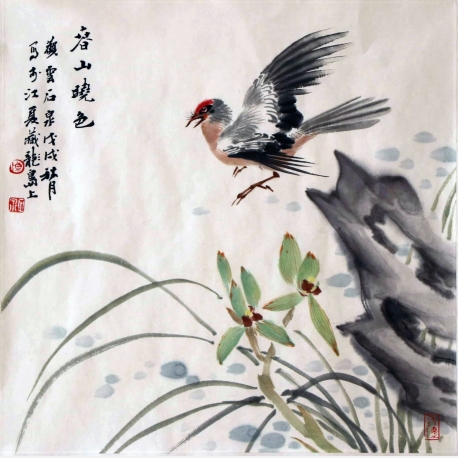 春山曉色
雲石泉戊戌秋月
写於江夏藏龍島上